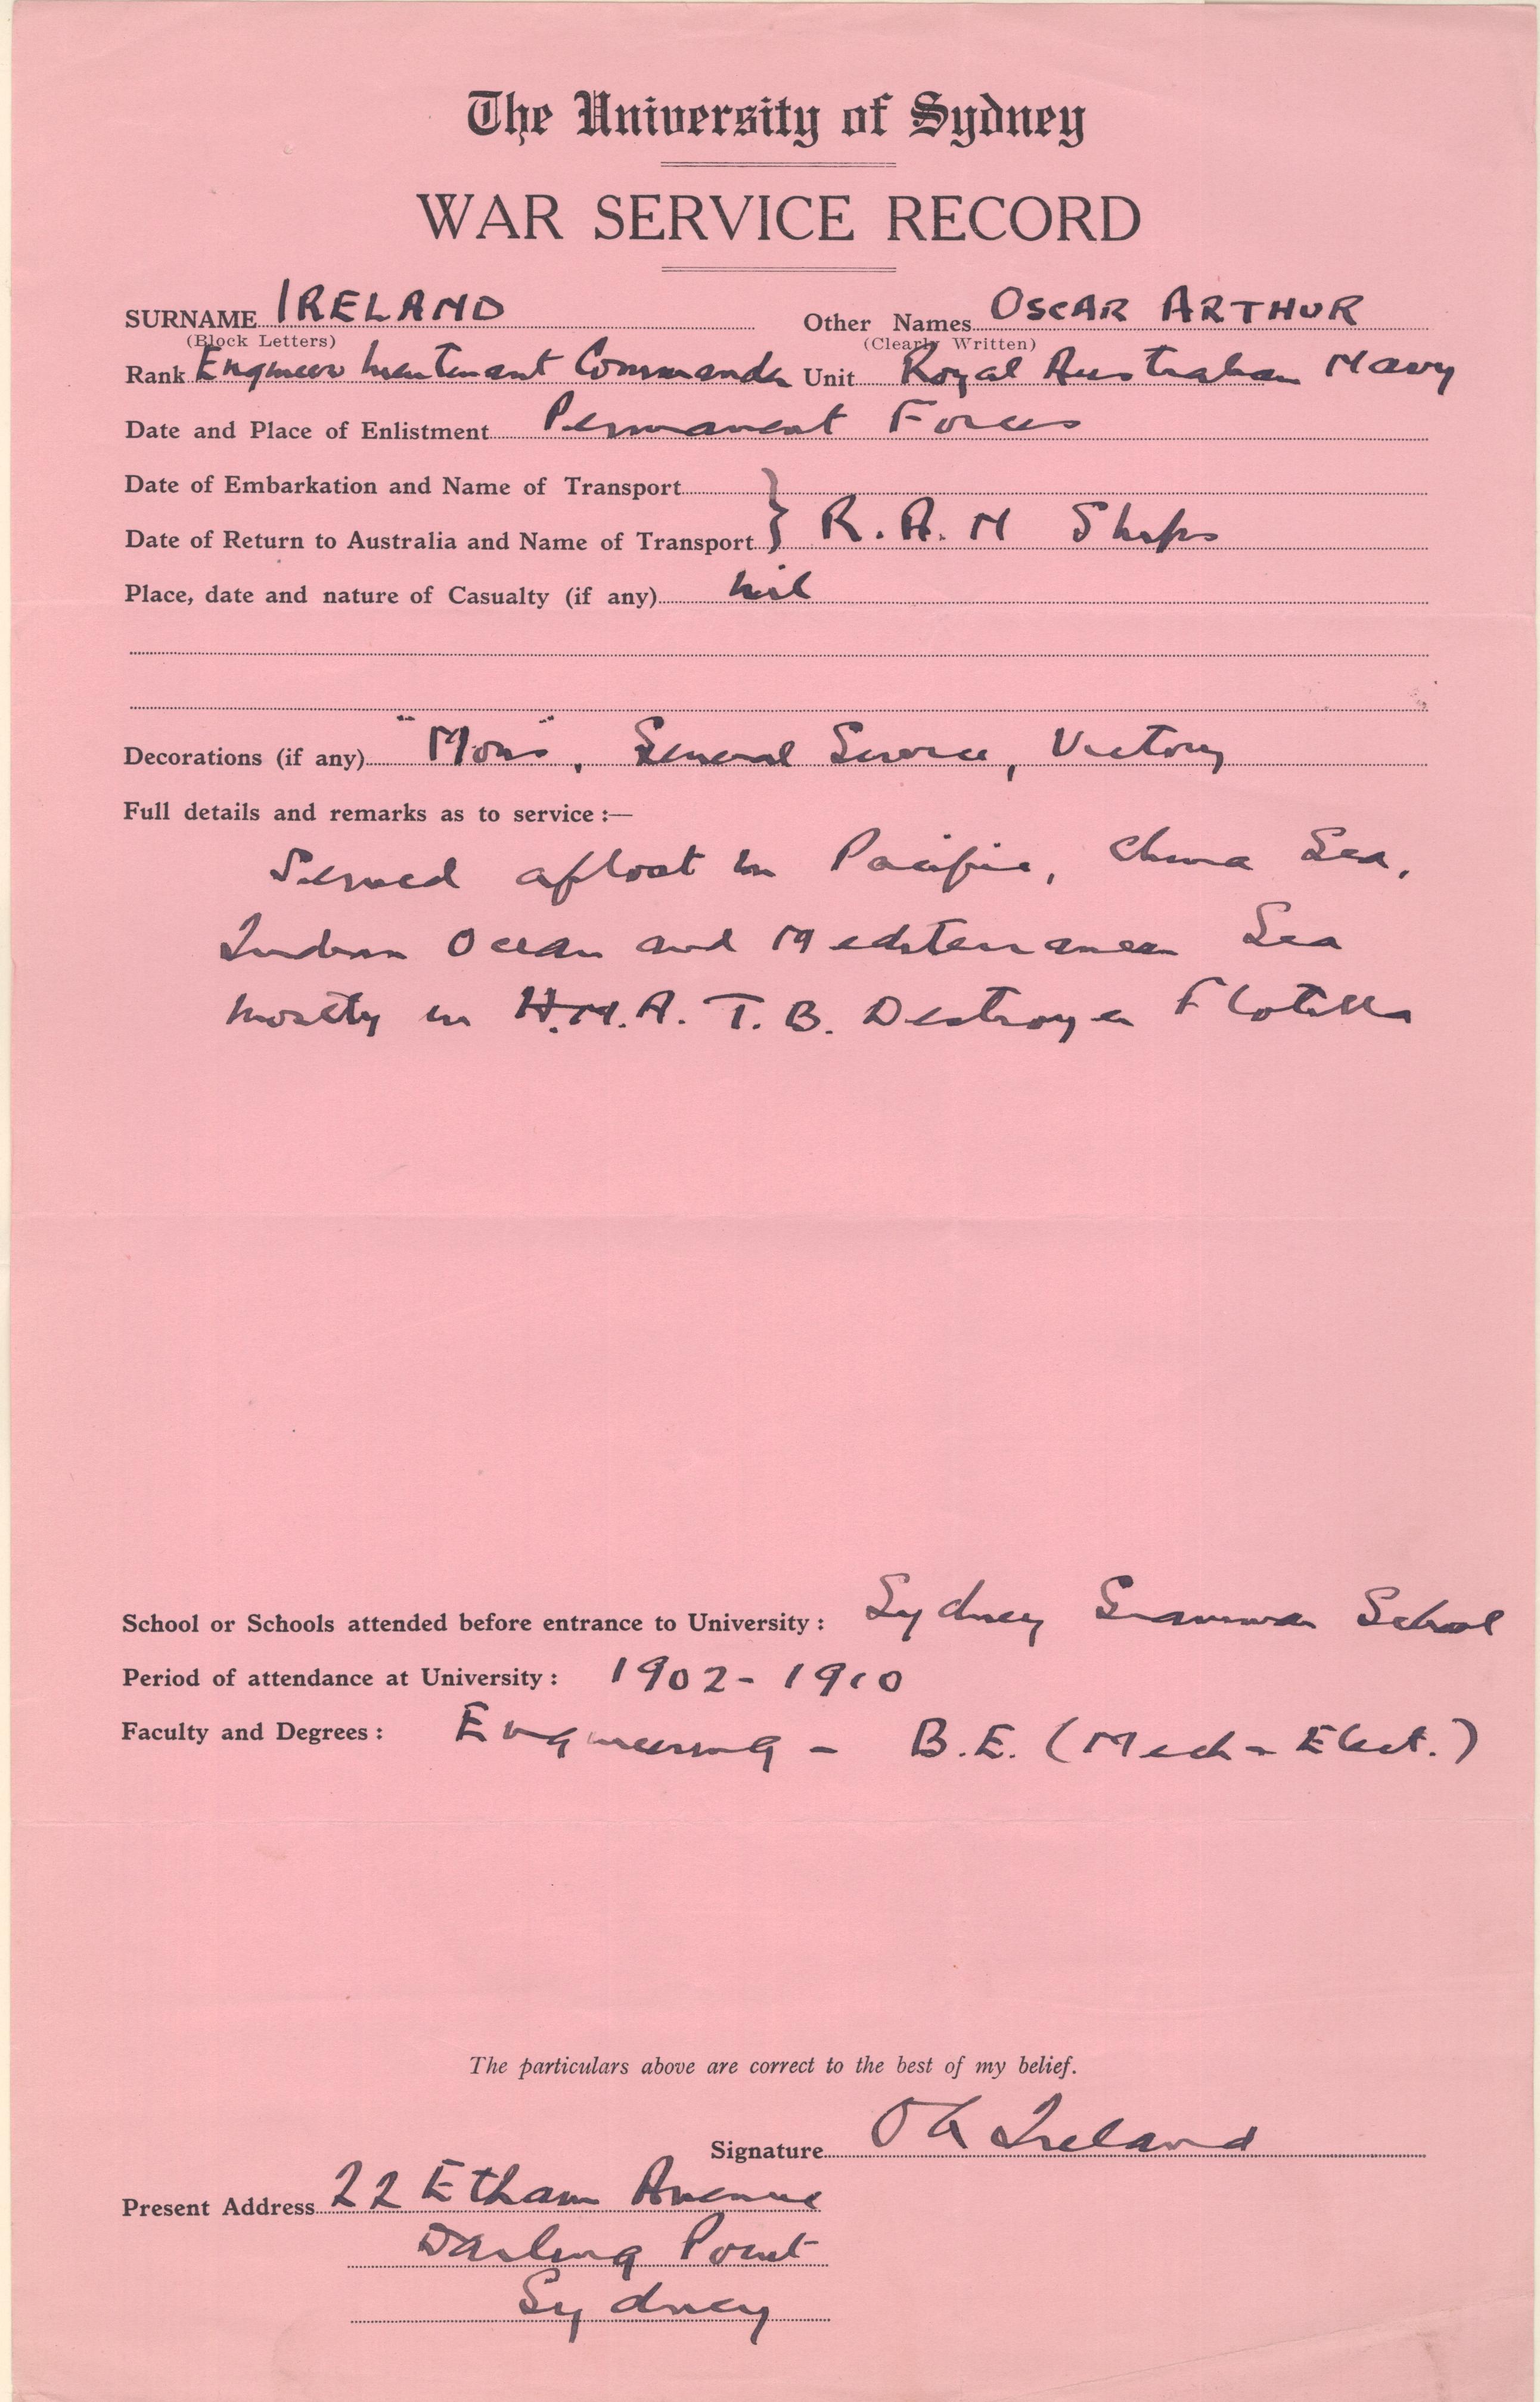 The University of Sydney
WAR SERVICE RECORD
SURNAME IRELAND Other Names OSCAR ARTHUR
(Block Letters) (Clearly Written)
Rank Engineer Lieutenant Commander Unit Royal Australian Navy
Date and Place of Enlistment Permanent Forces
Date of Embarkation and Name of Transport
Date of Return to Australia and Name of Transport } R.A.N Ships
Place, date and nature of Casualty (if any) nil
Decorations (if any) "Mons", General Service, Victory
Full details and remarks as to service :—
Served afloat in Pacific, China Sea,
Indian Ocean and Mediterranean Sea
mostly in H.M.A. T.B. Destroyer Flotilla
School or Schools attended before entrance to University : Sydney Grammar School
Period of attendance at University : 1902 - 1910
Faculty and Degrees : Engineering - B.E. (Mech - Elect.)
The particulars above are correct to the best of my belief.
Signature O A Ireland
Present Address 22 Etham Avenue
Darling Point
Sydney